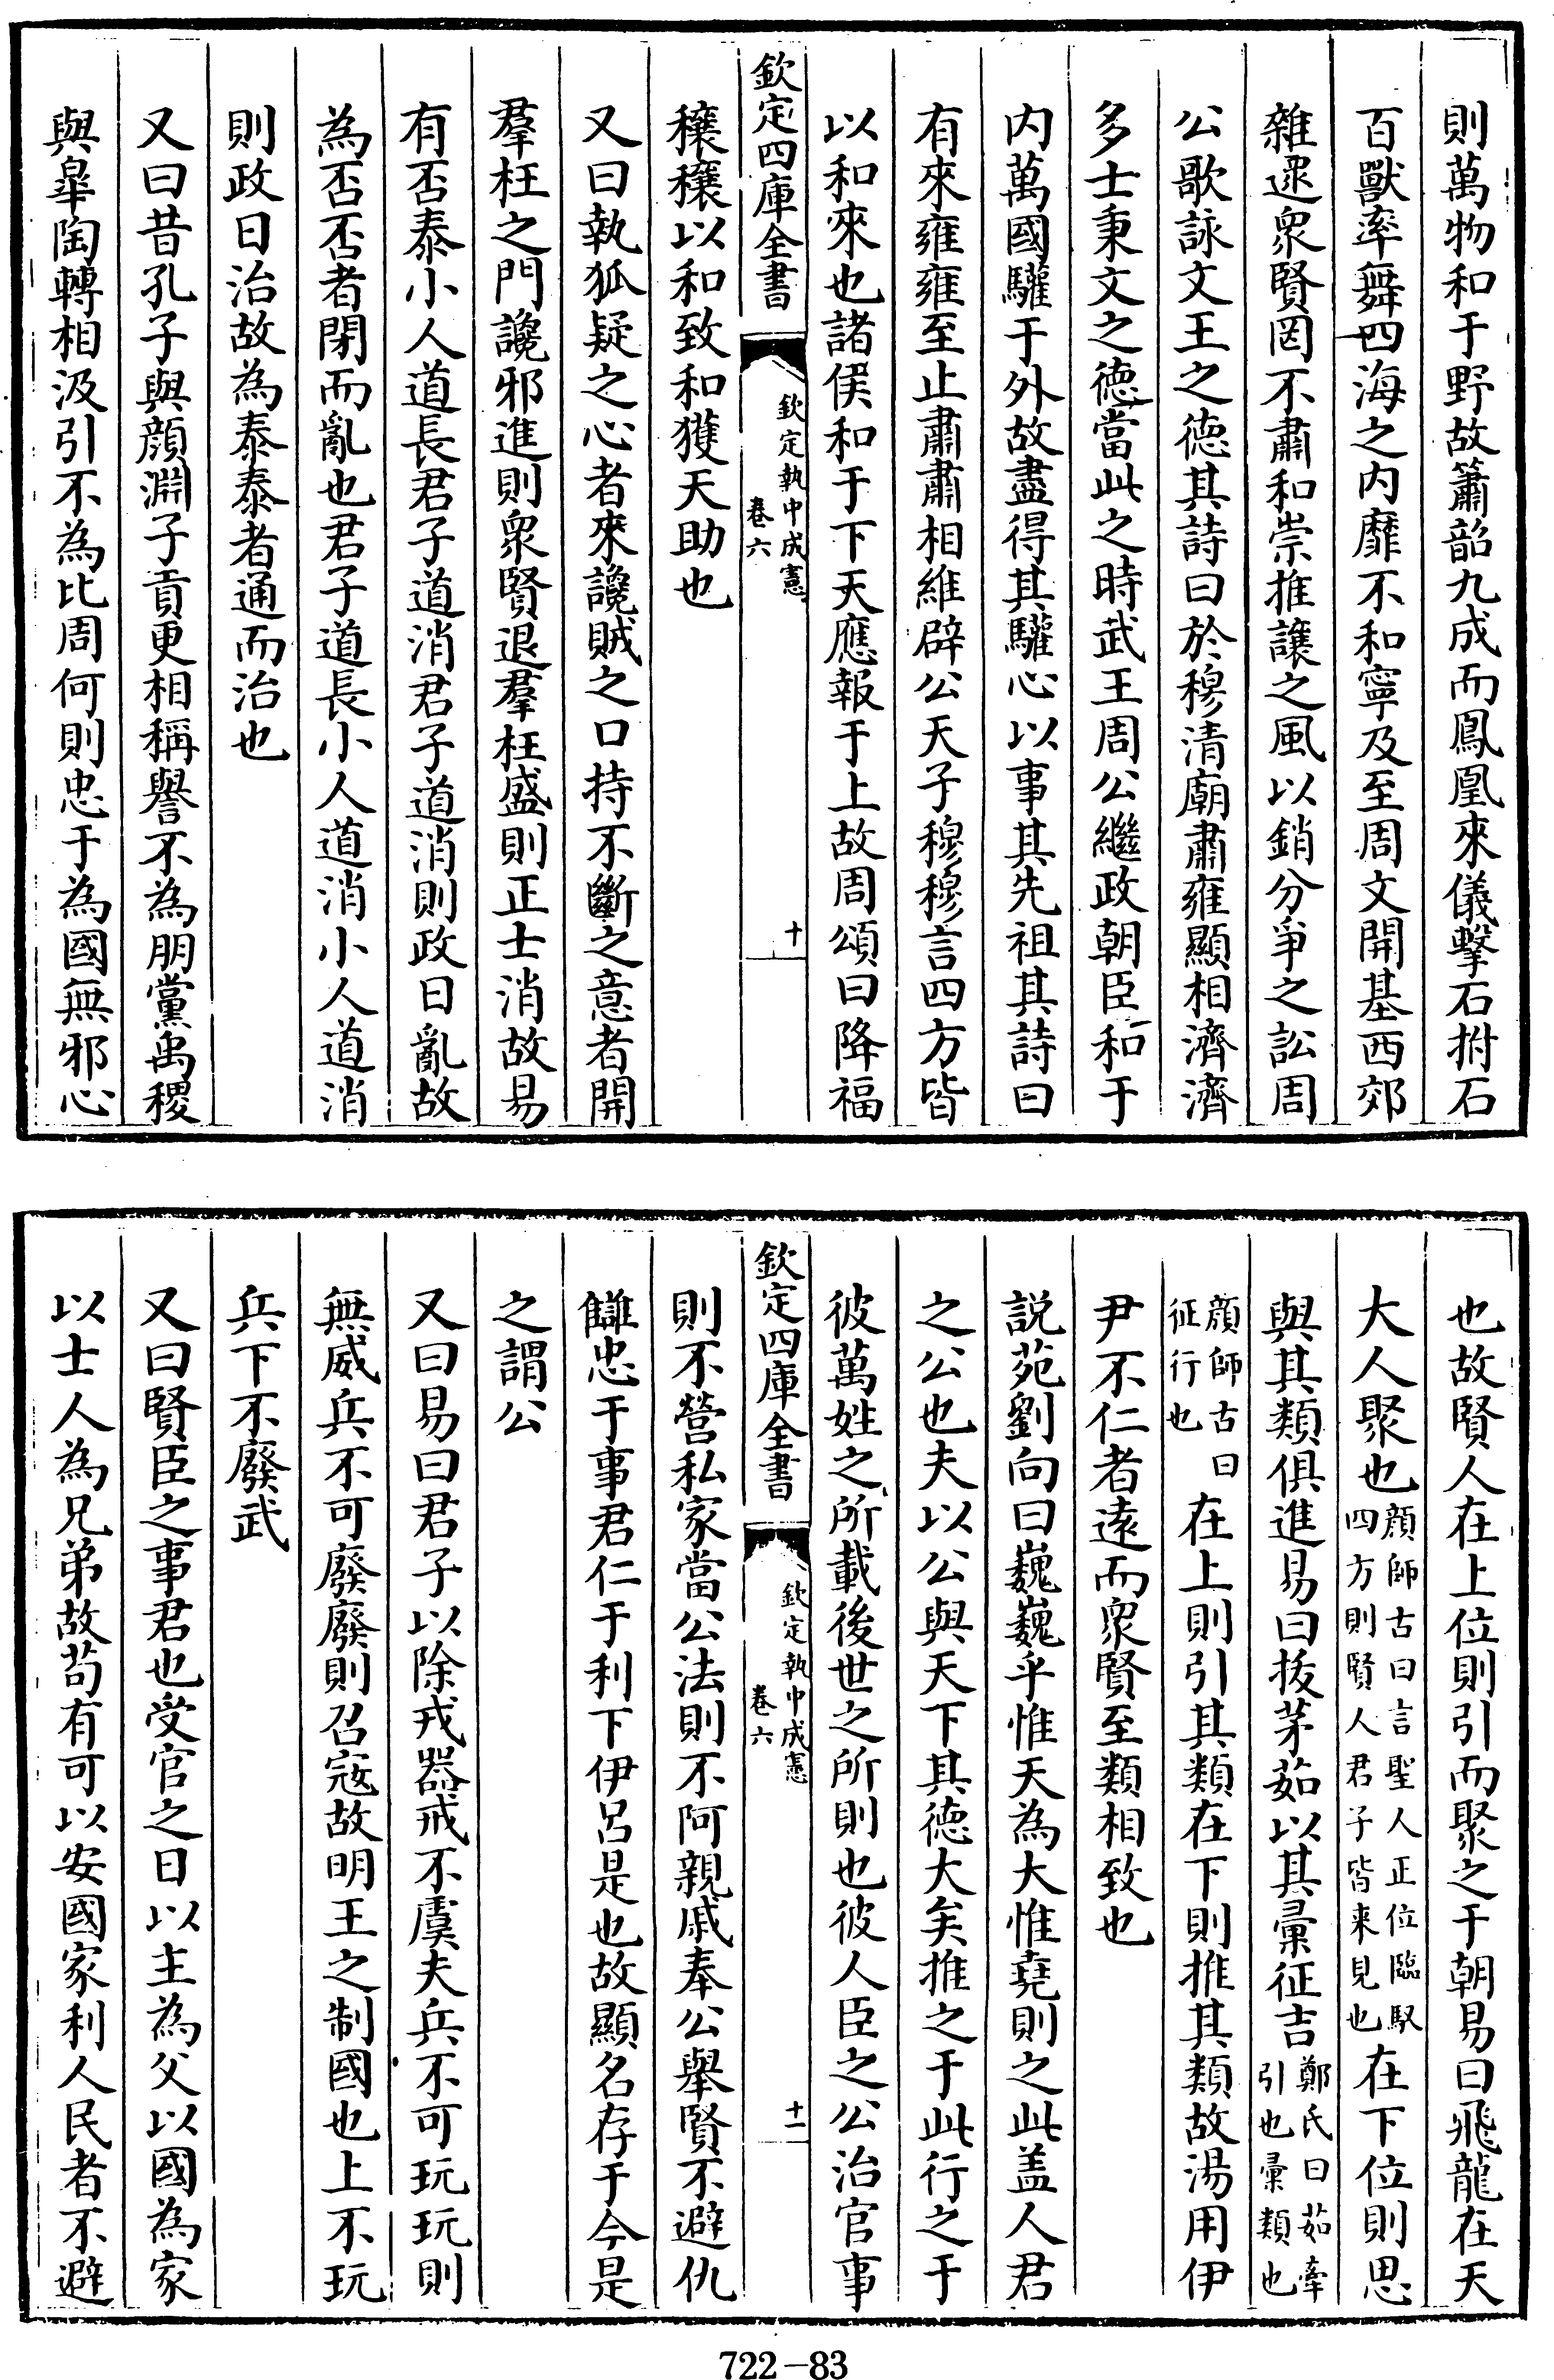 則萬物和于野故簫韶九成而鳳凰來儀擊石拊石
百獸率舞四海之内靡不和寧及至周文開基西郊
雜遝衆賢罔不肅和崇推讓之風以銷分爭之訟周
公歌詠文王之德其詩曰於穆清廟肅雍顯相濟濟
多士秉文之德當此之時武王周公繼政朝臣和于
内萬國驩于外故盡得其驩心以事其先祖其詩曰
有來雍雍至止肅肅相維辟公天子穆穆言四方皆
以和來也諸侯和于下天應報于上故周頌曰降福
欽定四庫全書
欽定執中成憲
卷六
十
穰穰以和致和獲天助也
又曰執狐疑之心者來讒賊之口持不斷之意者開
羣枉之門讒邪進則衆賢退羣枉盛則正士消故易
有否泰小人道長君子道消君子道消則政日亂故
為否否者閉而亂也君子道長小人道消小人道消
則政日治故為泰泰者通而治也
又曰昔孔子與顔淵子貢更相稱譽不為朋黨禹稷
與臯陶轉相汲引不為比周何則忠于為國無邪心
也故賢人在上位則引而聚之于朝易曰飛龍在天
大人聚也顔師古曰言聖人正位臨馭四方則賢人君子皆来見也在下位則思
與其類俱進易曰拔茅茹以其彚征吉鄭氏曰茹牽引也彚類也
顔師古曰征行也在上則引其類在下則推其類故湯用伊
尹不仁者遠而衆賢至類相致也
説苑劉向曰巍巍乎惟天為大惟堯則之此盖人君
之公也夫以公與天下其德大矣推之于此行之于
彼萬姓之所載後世之所則也彼人臣之公治官事
欽定四庫全書
欽定執中成憲
卷六
十一
則不營私家當公法則不阿親戚奉公舉賢不避仇
讎忠于事君仁于利下伊呂是也故顯名存于今是
之謂公
又曰易曰君子以除戎器戒不虞夫兵不可玩玩則
無威兵不可廢廢則召寇故明王之制國也上不玩
兵下不廢武
又曰賢臣之事君也受官之日以主為父以國為家
以士人為兄弟故苟有可以安國家利人民者不避
722-83